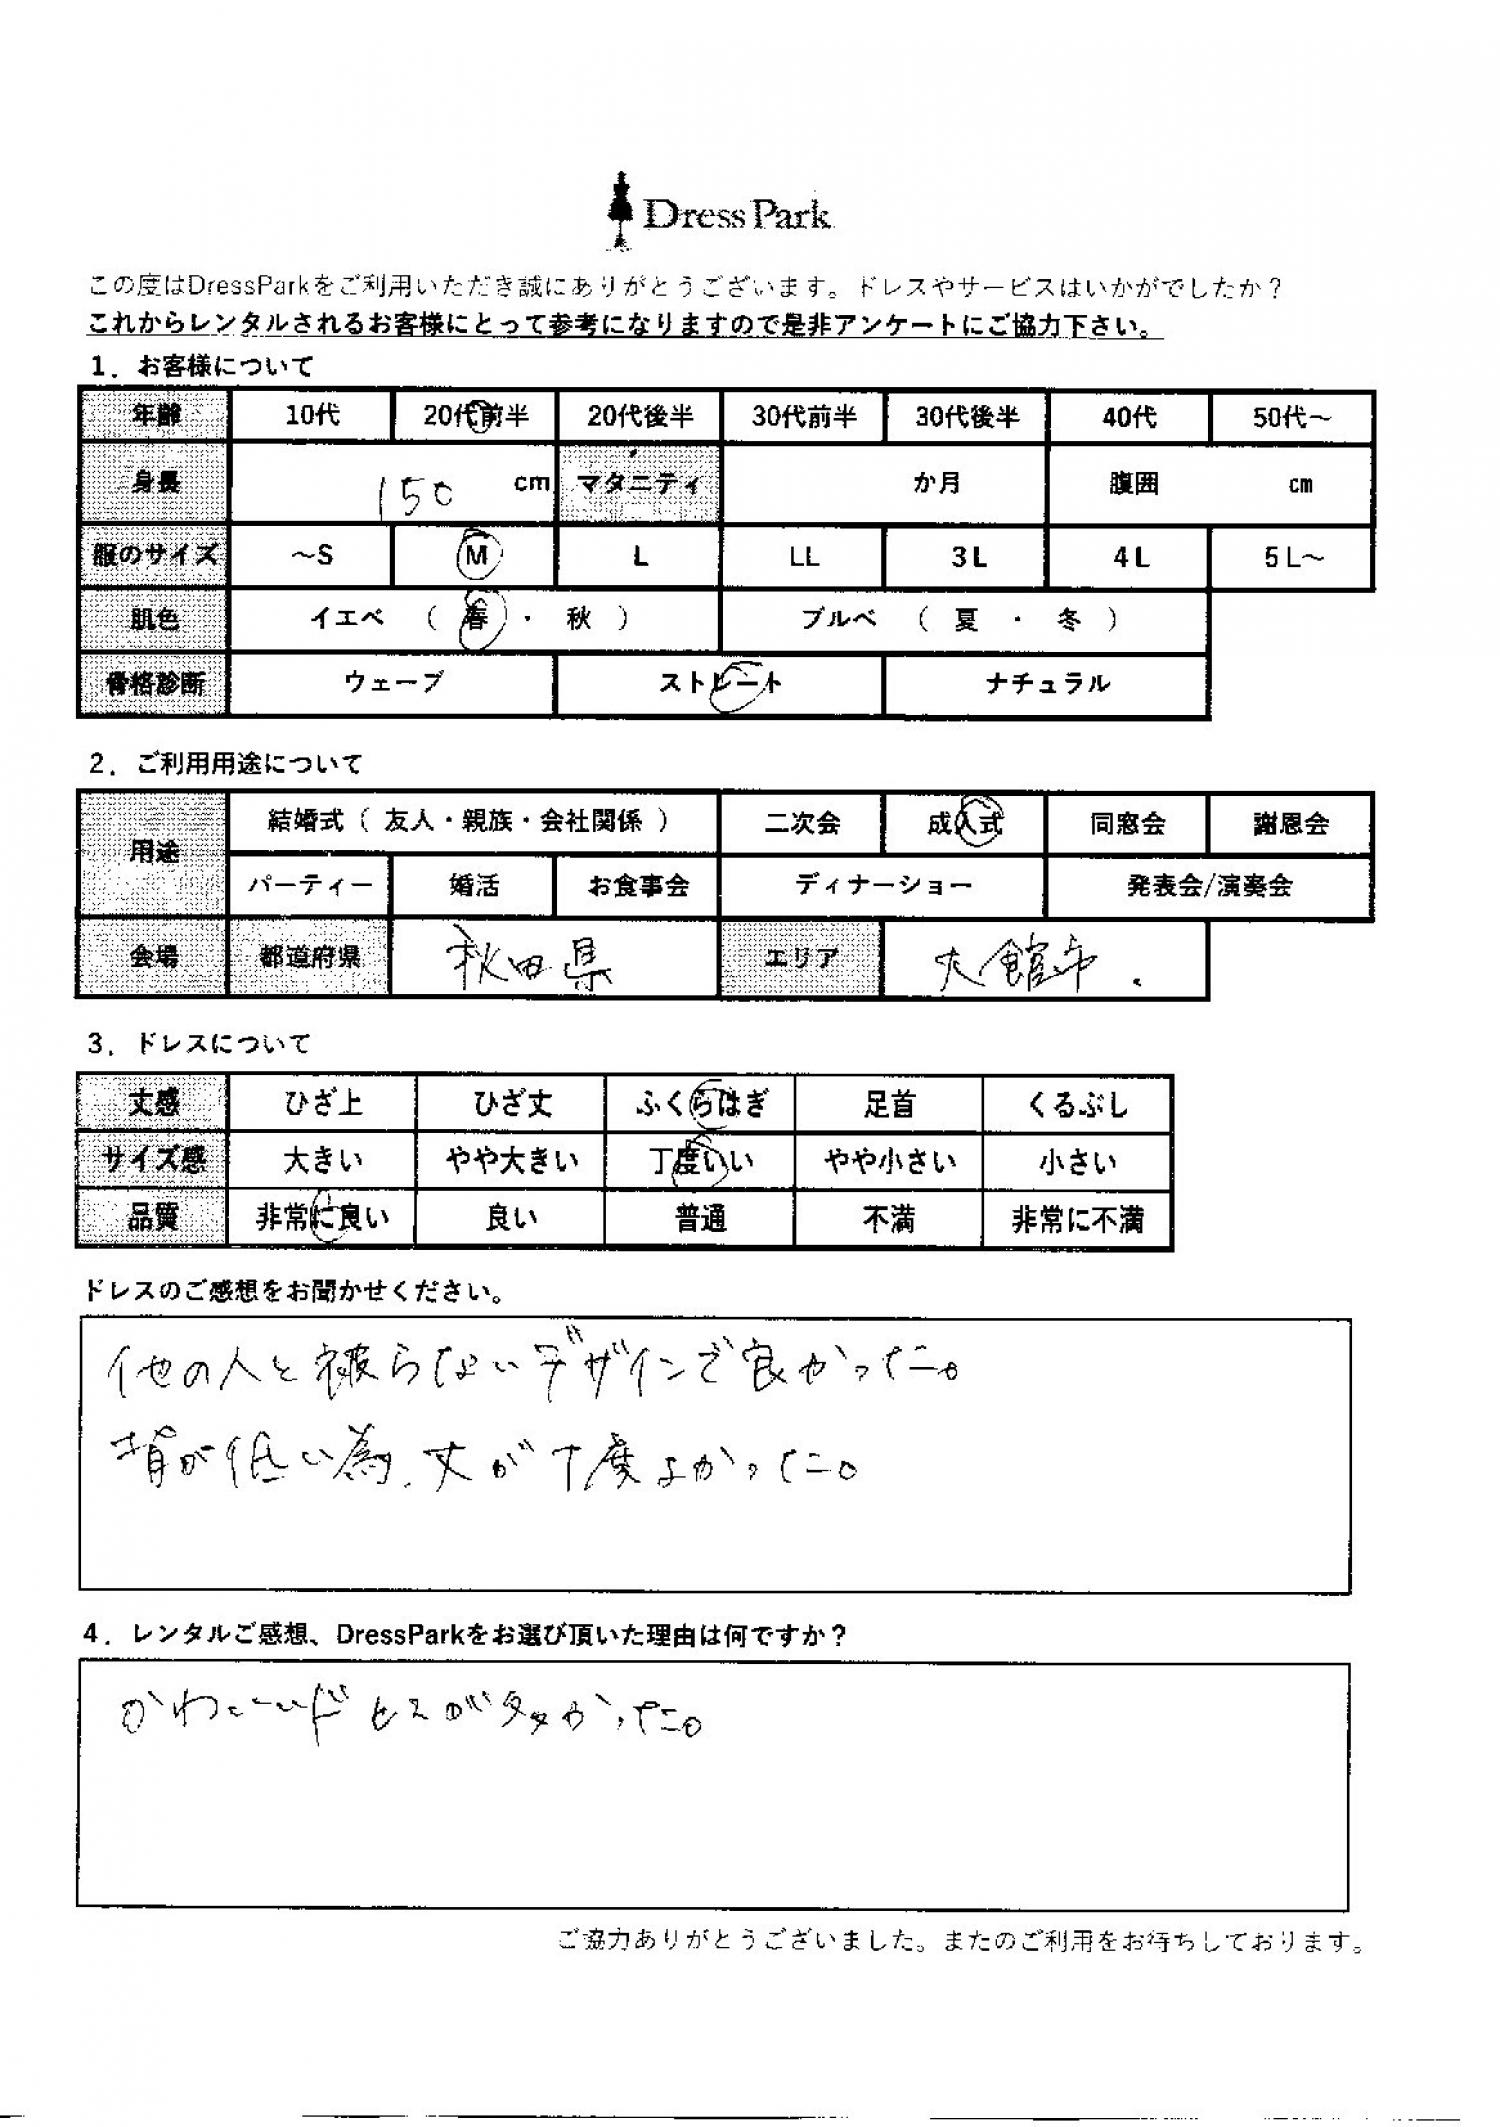 Dress Park
この度はDressParkをご利用いただき誠にありがとうございます。ドレスやサービスはいかがでしたか？
これからレンタルされるお客様にとって参考になりますので是非アンケートにご協力下さい。
1．お客様について
年齢 10代 20代前半 20代後半 30代前半 30代後半 40代 50代～
身長 150 cm マタニティ か月 腹囲 cm
服のサイズ ～S M L LL 3L 4L 5L～
肌色 イエベ （ 春 ・ 秋 ） ブルベ （ 夏 ・ 冬 ）
骨格診断 ウェーブ ストレート ナチュラル
2．ご利用用途について
用途 結婚式（ 友人・親族・会社関係 ） 二次会 成人式 同窓会 謝恩会
パーティー 婚活 お食事会 ディナーショー 発表会/演奏会
会場 都道府県 秋田県 エリア 大館市.
3．ドレスについて
丈感 ひざ上 ひざ丈 ふくらはぎ 足首 くるぶし
サイズ感 大きい やや大きい 丁度いい やや小さい 小さい
品質 非常に良い 良い 普通 不満 非常に不満
ドレスのご感想をお聞かせください。
他の人と被らないデザインで良かった。
背が低い為、丈が丁度よかった。
4．レンタルご感想、DressParkをお選び頂いた理由は何ですか？
かわいいドレスが多かった。
ご協力ありがとうございました。またのご利用をお待ちしております。